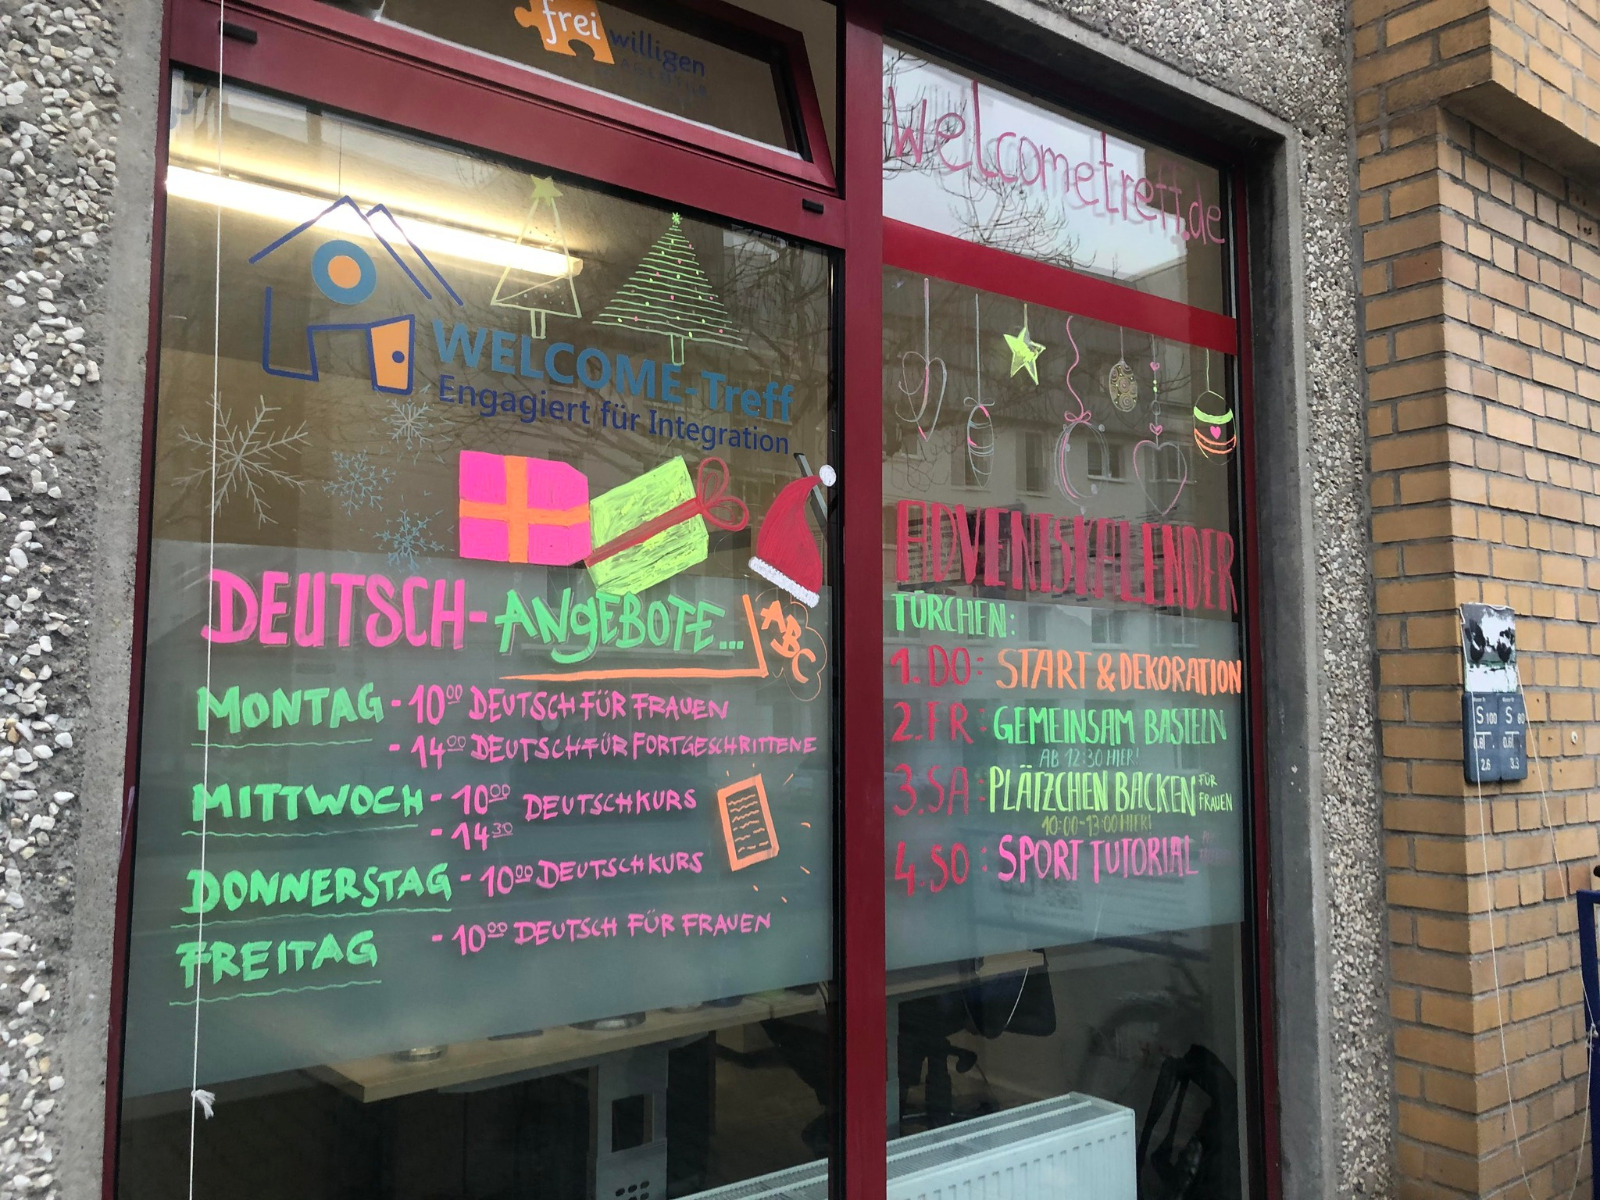 frei willigen
welcometreff.de
WELCOME-Treff
Engagiert für Integration
DEUTSCH-ANGEBOTE...
ABC
MONTAG - 10⁰⁰ DEUTSCH FÜR FRAUEN
- 14⁰⁰ DEUTSCH FÜR FORTGESCHRITTENE
MITTWOCH - 10⁰⁰ DEUTSCHKURS
- 14³⁰
DONNERSTAG - 10⁰⁰ DEUTSCHKURS
FREITAG - 10⁰⁰ DEUTSCH FÜR FRAUEN
ADVENTSKALENDER
TÜRCHEN:
1. DO: START & DEKORATION
2. FR: GEMEINSAM BASTELN
AB 12:30 HIER!
3. SA: PLÄTZCHEN BACKEN FÜR FRAUEN
10:00-13:00 HIER!
4. SO: SPORT TUTORIAL
S 100 S 80
2.6 3.3